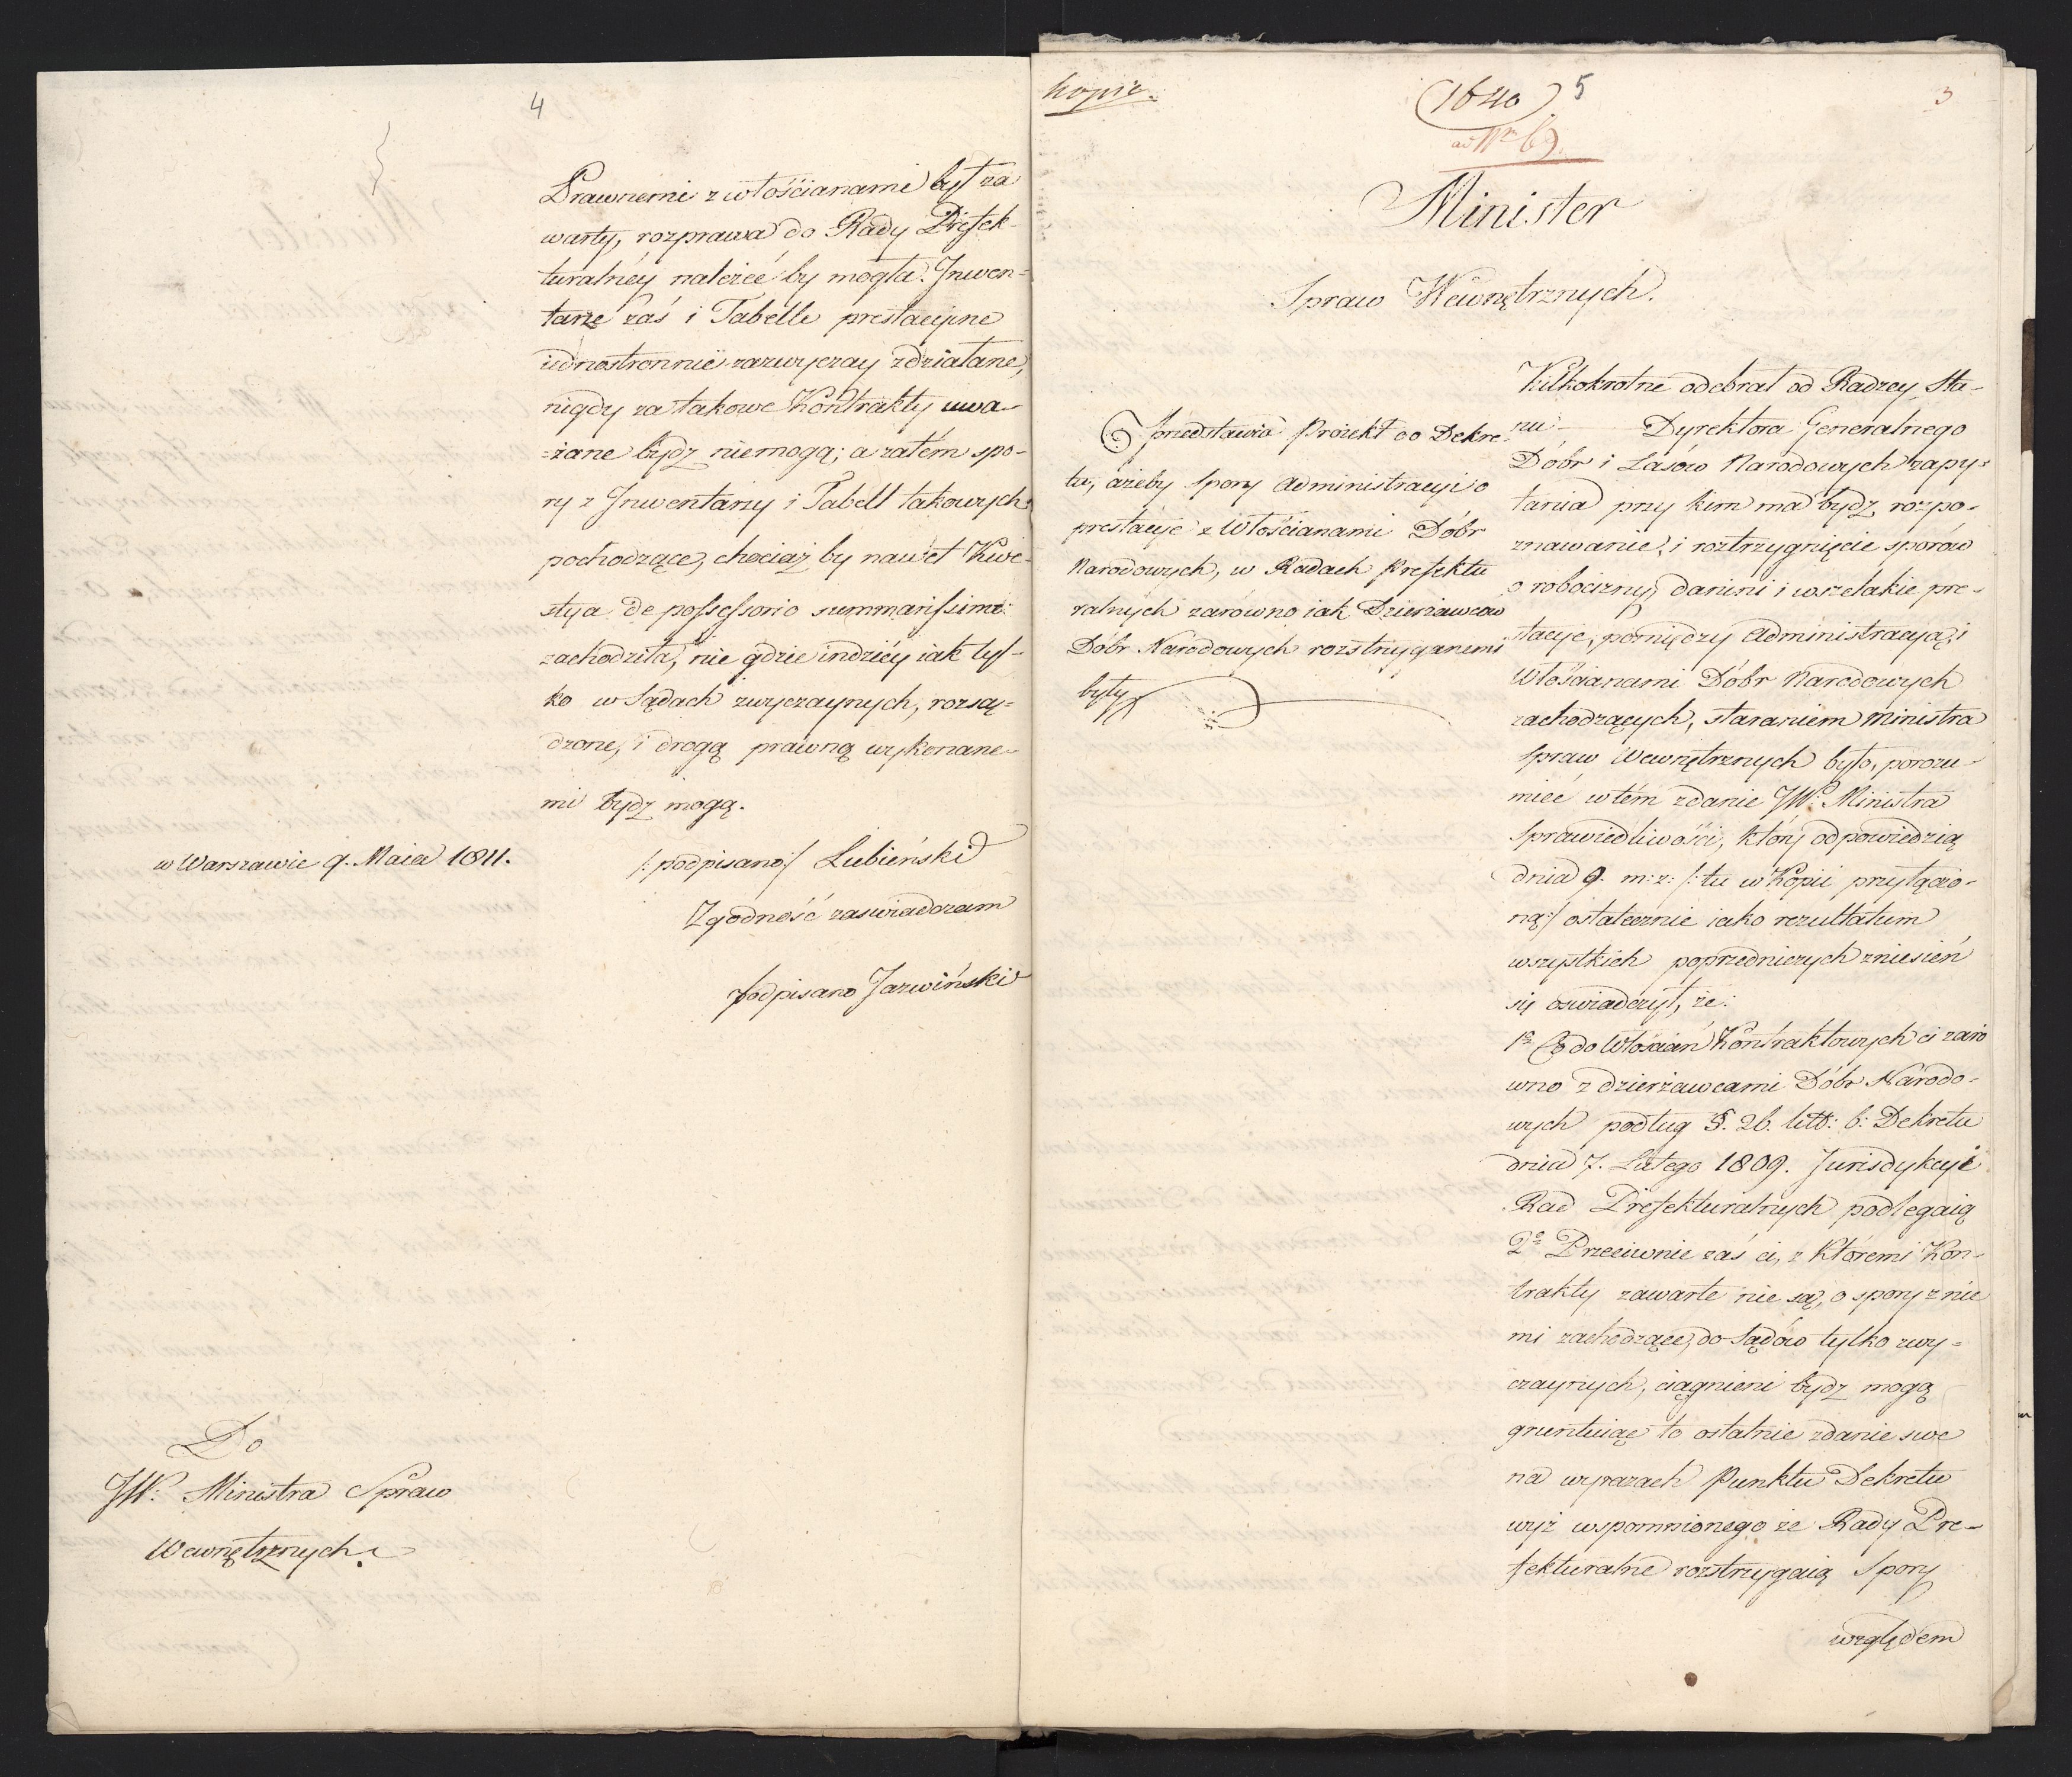 4
Prawnemi z włościanami był za
warty, rozprawa do Rady Prefek-
turalnéy należeć by mogła. Inwen=
tarze zaś i Tabelle prestacyjne
iednostronnie zazwyczay zdziałane,
nigdy za takowe Kontrakty uwa-
=żane bydz niemogą; a zatém spo-
ry z Inwentarzy i Tabell takowych
pochodzące, chociaż by nawet Kwe-
stya de possessorio summarissimo
zachodziła, nie gdzie indziéy iak tyl-
ko w Sądach zwyczaynych, rozsą=
dzone, i drogą prawną wykonane-
mi bydz mogą.
w Warszawie 9. Maia 1811.
/: podpisano :/ Lubieński
Zgodność zaświadczam
podpisano Jarwiński
Do
JW. Ministra Spraw
Wewnętrznych.
Kopia.
1640
5
3
ad Nr 67.
Minister
Spraw Wewnętrznych.
Przedstawia Proiekt do Dekre
tu, ażeby Spory Administracyi o
prestacye z Włościanami Dóbr
Narodowych, w Radach Prefektu
ralnych zarówno iak Dzierżawców
Dóbr Narodowych rozstrzyganemi
były
Kilkokrotne odebrał od Radzcy Sta-
nu Dyrektora Generalnego
Dóbr i Lasów Narodowych zapy=
tania przy kim ma bydz rozpo-
znawanie, i roztrzygnięcie sporów
o robocizny, daniny i wszelakie pre-
stacye, pomiędzy Administracyą i
Włościanami Dóbr Narodowych
zachodzących, staraniem Ministra
Spraw Wewnętrznych było, porozu-
mieć w tém zdanie JW. Ministra
Sprawiedliwości, który odpowiedzią
dnia 9. m: z: /: tu w Kopii przyłączo-
ną :/ ostatecznie iako rezultatum
wszystkich poprzedniczych zniesień
się oświadczył, że:
1o Co do Włościan Kontraktowych ci zaró
wno z dzierżawcami Dóbr Narodo-
wych podług §. 26. litt: b: Dekretu
dnia 7. Lutego 1809. Jurisdykcyi
Rad Prefekturalnych podlegaią
2o Przeciwnie zaś ci, z któremi Kon-
trakty zawarte nie są, o spory z nie
mi zachodzące, do Sądów tylko zwy=
czaynych, ciągnieni bydz mogą
gruntuiąc to ostatnie zdanie swe
na wyrazach Punktu Dekretu
wyż wspomnionego że Rady Pre-
fekturalne rozstrzygaią Spory
względem